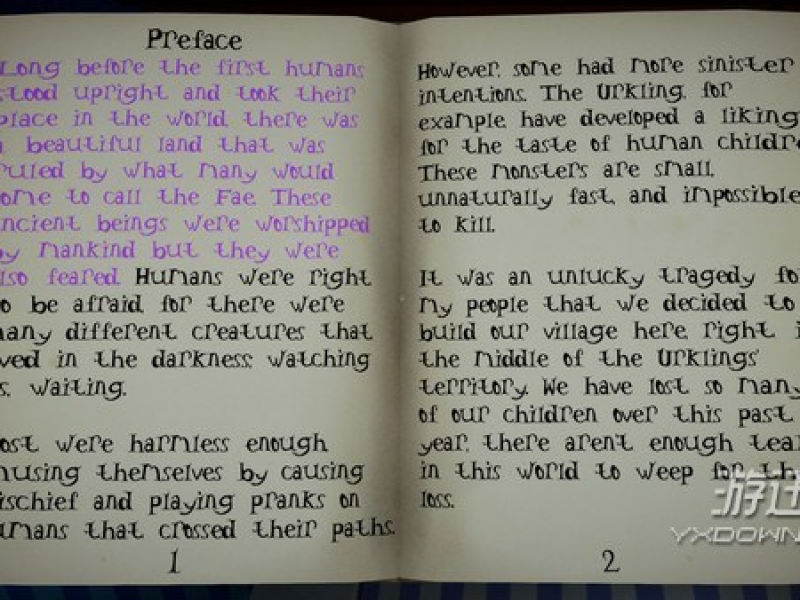 Preface
Long before the first humans
stood upright and took their
place in the world, there was
a beautiful land that was
ruled by what many would
come to call the Fae. These
ancient beings were worshipped
by mankind but they were
also feared. Humans were right
to be afraid, for there were
many different creatures that
lived in the darkness; watching
us, waiting.
Most were harmless enough
amusing themselves by causing
mischief and playing pranks on
humans that crossed their paths.
1
However, some had more sinister
intentions. The Urkling, for
example, have developed a liking
for the taste of human childre
These monsters are small,
unnaturally fast, and impossible
to kill.
It was an unlucky tragedy fo
my people that we decided to
build our village here, right i
the middle of the Urklings'
territory. We have lost so many
of our children over this past
year, there aren't enough tear
in this world to weep for th
loss.
2
游迅
YXDOWN